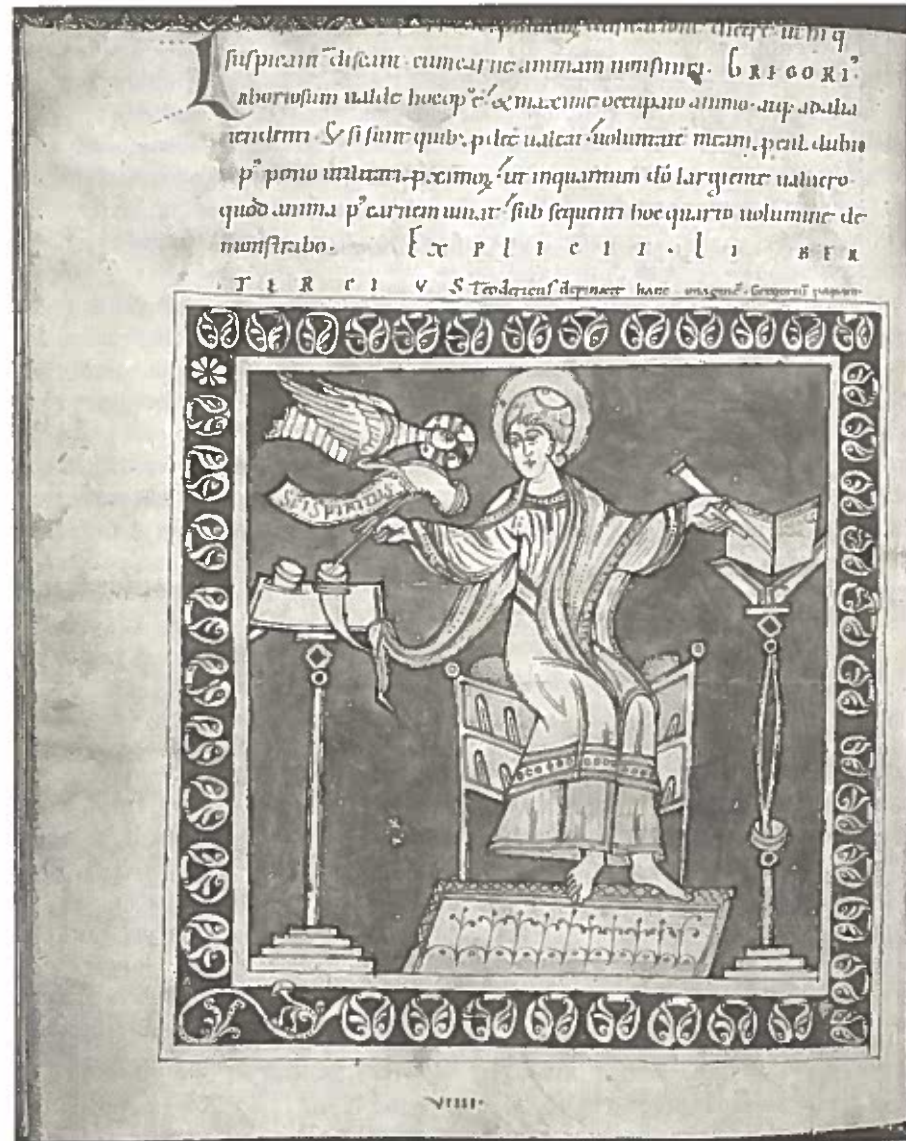 suspicam̄ discam cum carne animam non finiri. GRIGORI᾽
Laboriosum ualde hoc op᾽ ē. & maxime occupato animo atq; ad alia
tendenti. Sẏ si sunt quib; p̱desse ualeat uoluntatē meam p̱cul dubio
p᾽ pono utilitati p̱ximoꝝ. ut inquantum dō largiente ualuero
quod anima p᾽ carnem uiuat sub sequenti hoc quarto uolumine de
monstrabo. EXPLICIT. LI BER
TERCIVS Teodericus depinxit hanc imaginē. Gregoriū papam.
SC̄I SPIRITUS
VIIII.